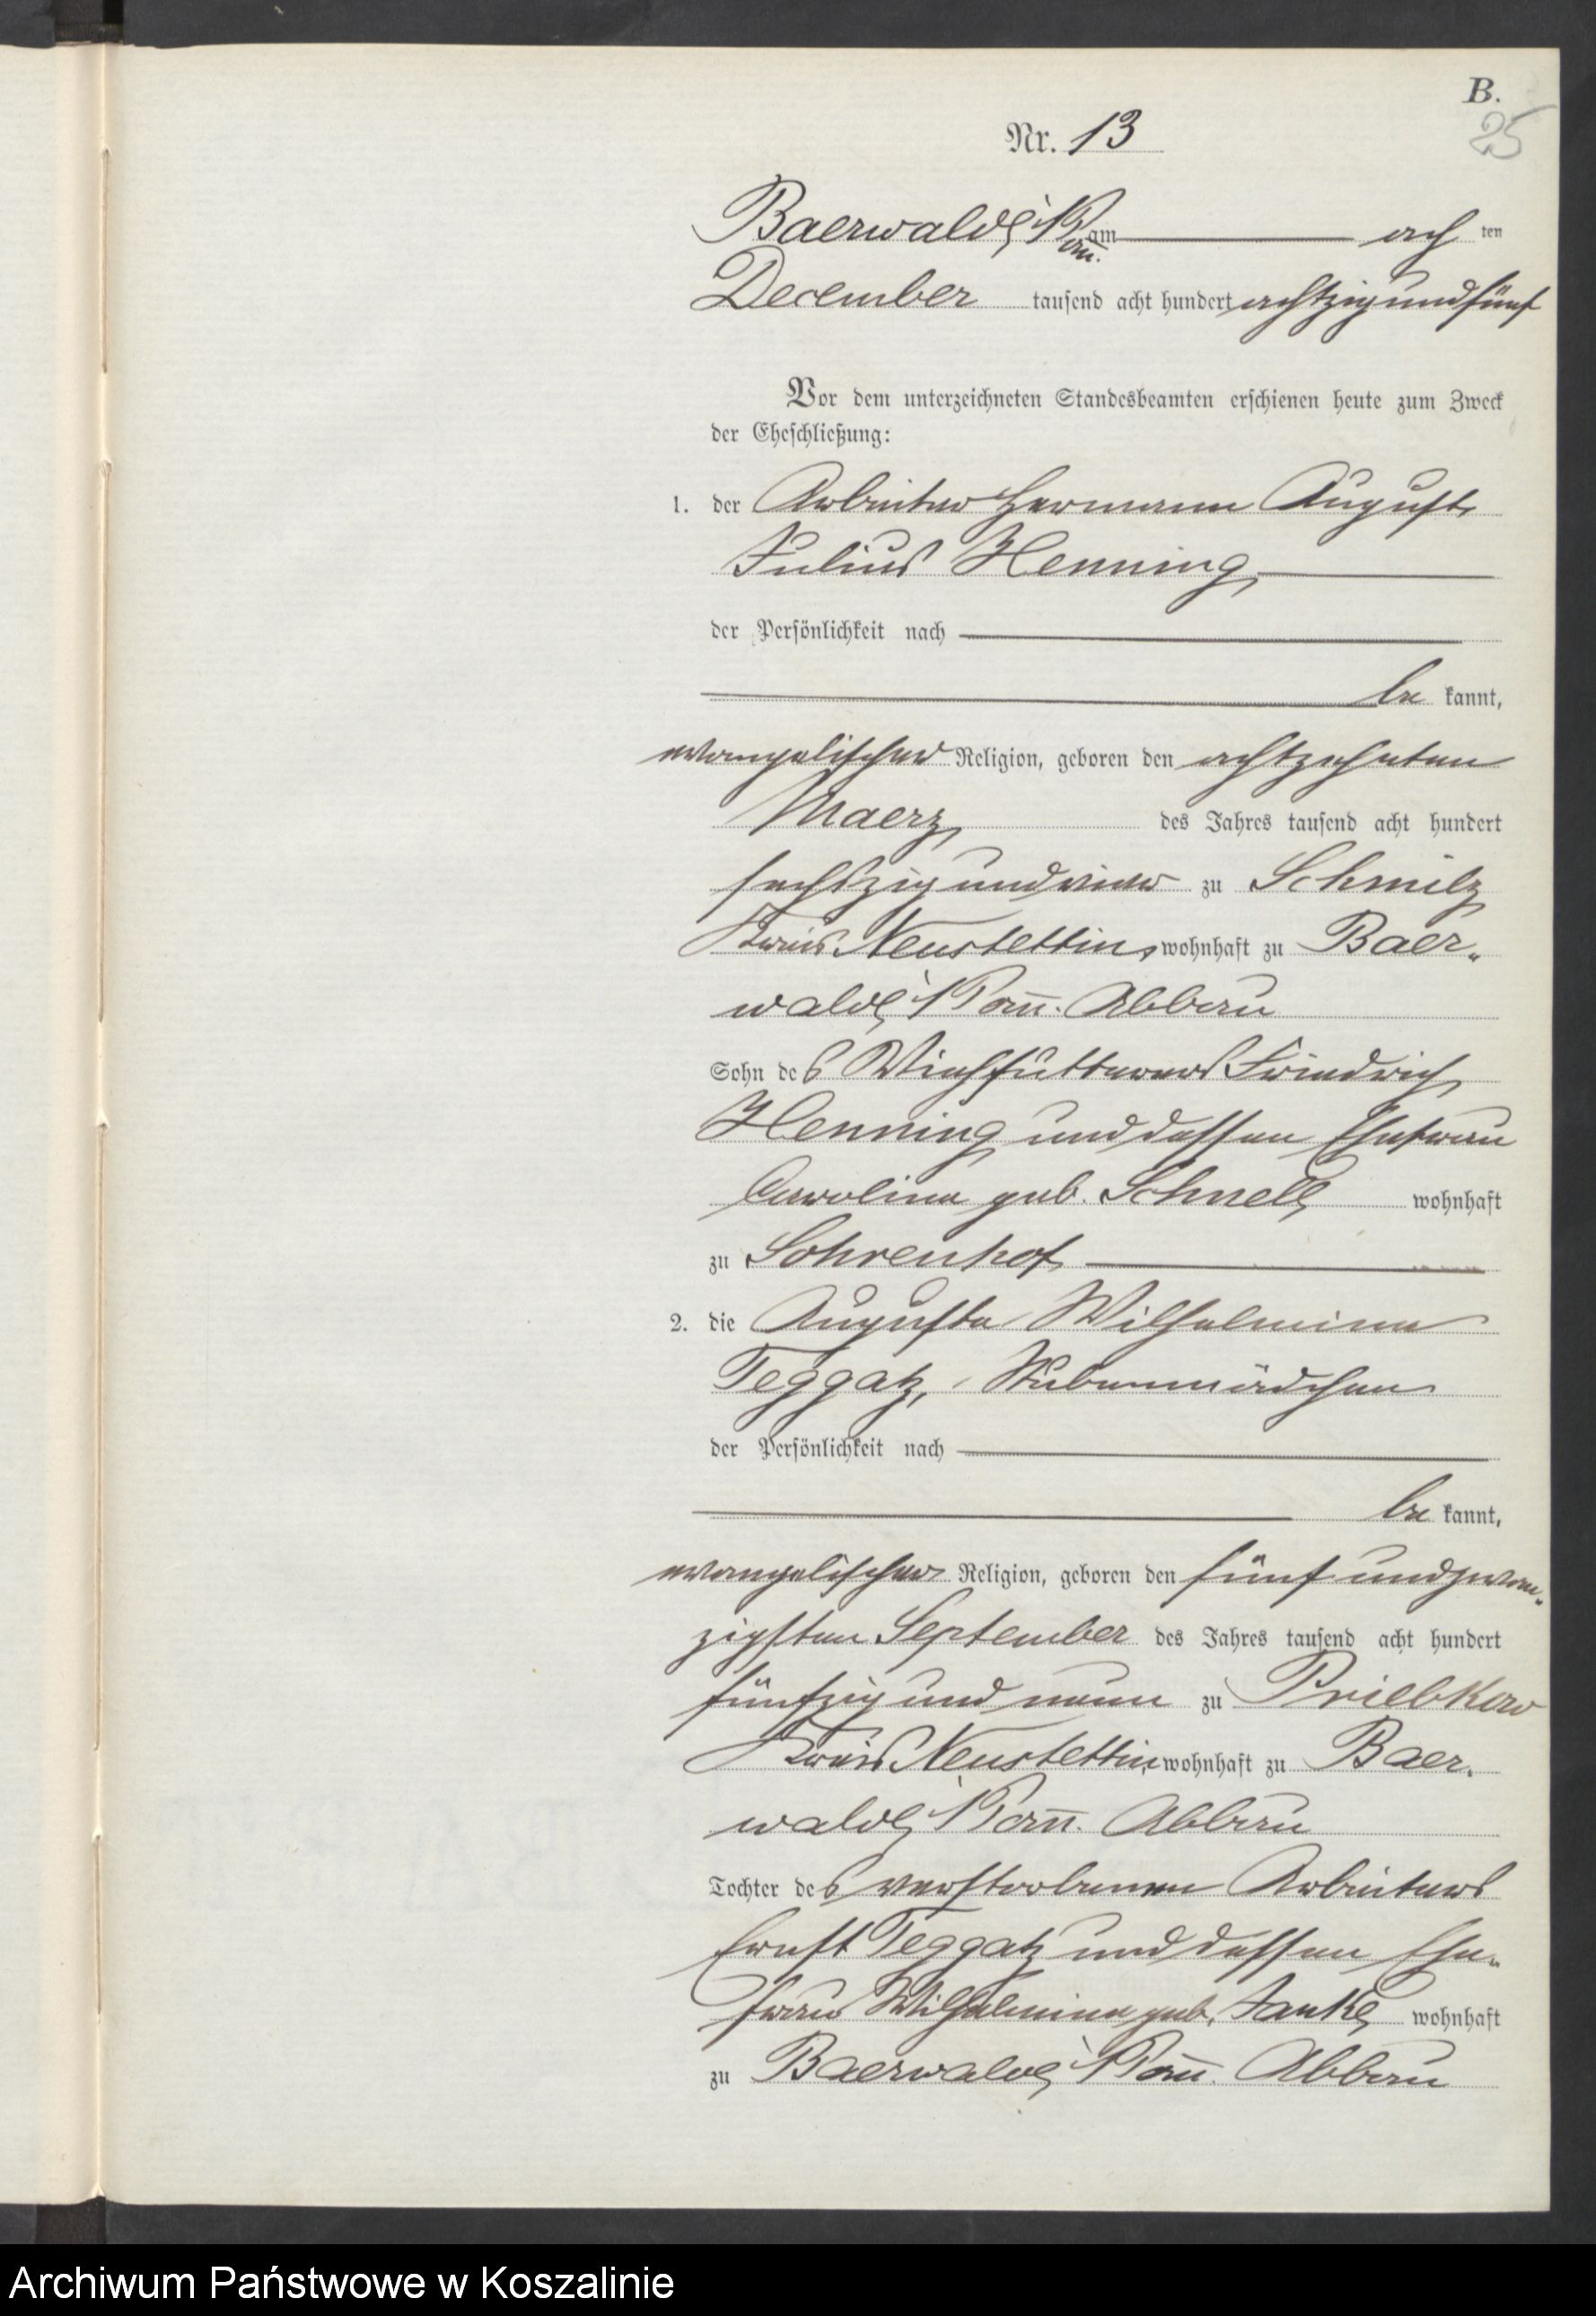 B.
25
Nr. 13
Baerwalde i/Pom. am ach ten
December tausend acht hundert achtzig und fünf
Vor dem unterzeichneten Standesbeamten erschienen heute zum Zweck
der Eheschließung:
1. der Arbeiter Hermann August
Julius Henning,
der Persönlichkeit nach
be kannt,
evangelischer Religion, geboren den achtzehnten
Maerz des Jahres tausend acht hundert
sechszig und vier zu Schmilz
Kreis Neustettin, wohnhaft zu Baer-
walde i/Pom. Abbau
Sohn des Viehfütterers Friedrich
Henning und dessen Ehefrau
Caroline geb. Schnell, wohnhaft
zu Sohrenhof
2. die Auguste Wilhelmine
Teggatz, Stubenmädchen
der Persönlichkeit nach
be kannt,
evangelischer Religion, geboren den fünf und zwan-
zigsten September des Jahres tausend acht hundert
fünfzig und neun zu Priebkow
Kreis Neustettin, wohnhaft zu Baer-
walde i/Pom. Abbau
Tochter des verstorbenen Arbeiters
Ernst Teggatz und dessen Ehe-
frau Wilhelmine geb. Janke, wohnhaft
zu Baerwalde i/Pom. Abbau
Archiwum Państwowe w Koszalinie